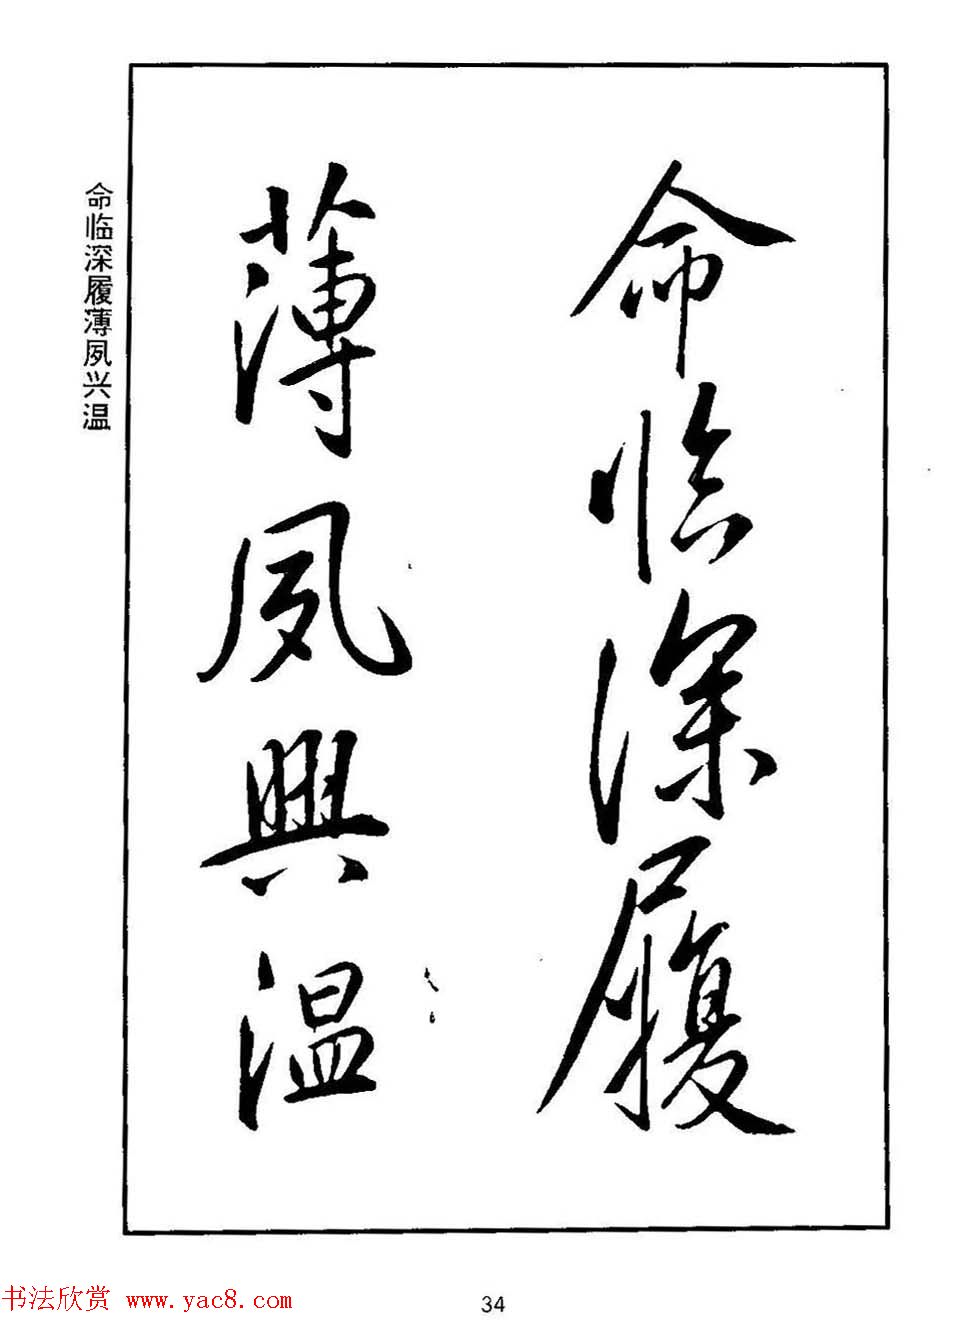 命临深履
薄夙興温
命临深履薄夙兴温
书法欣赏 www.yac8.com
34